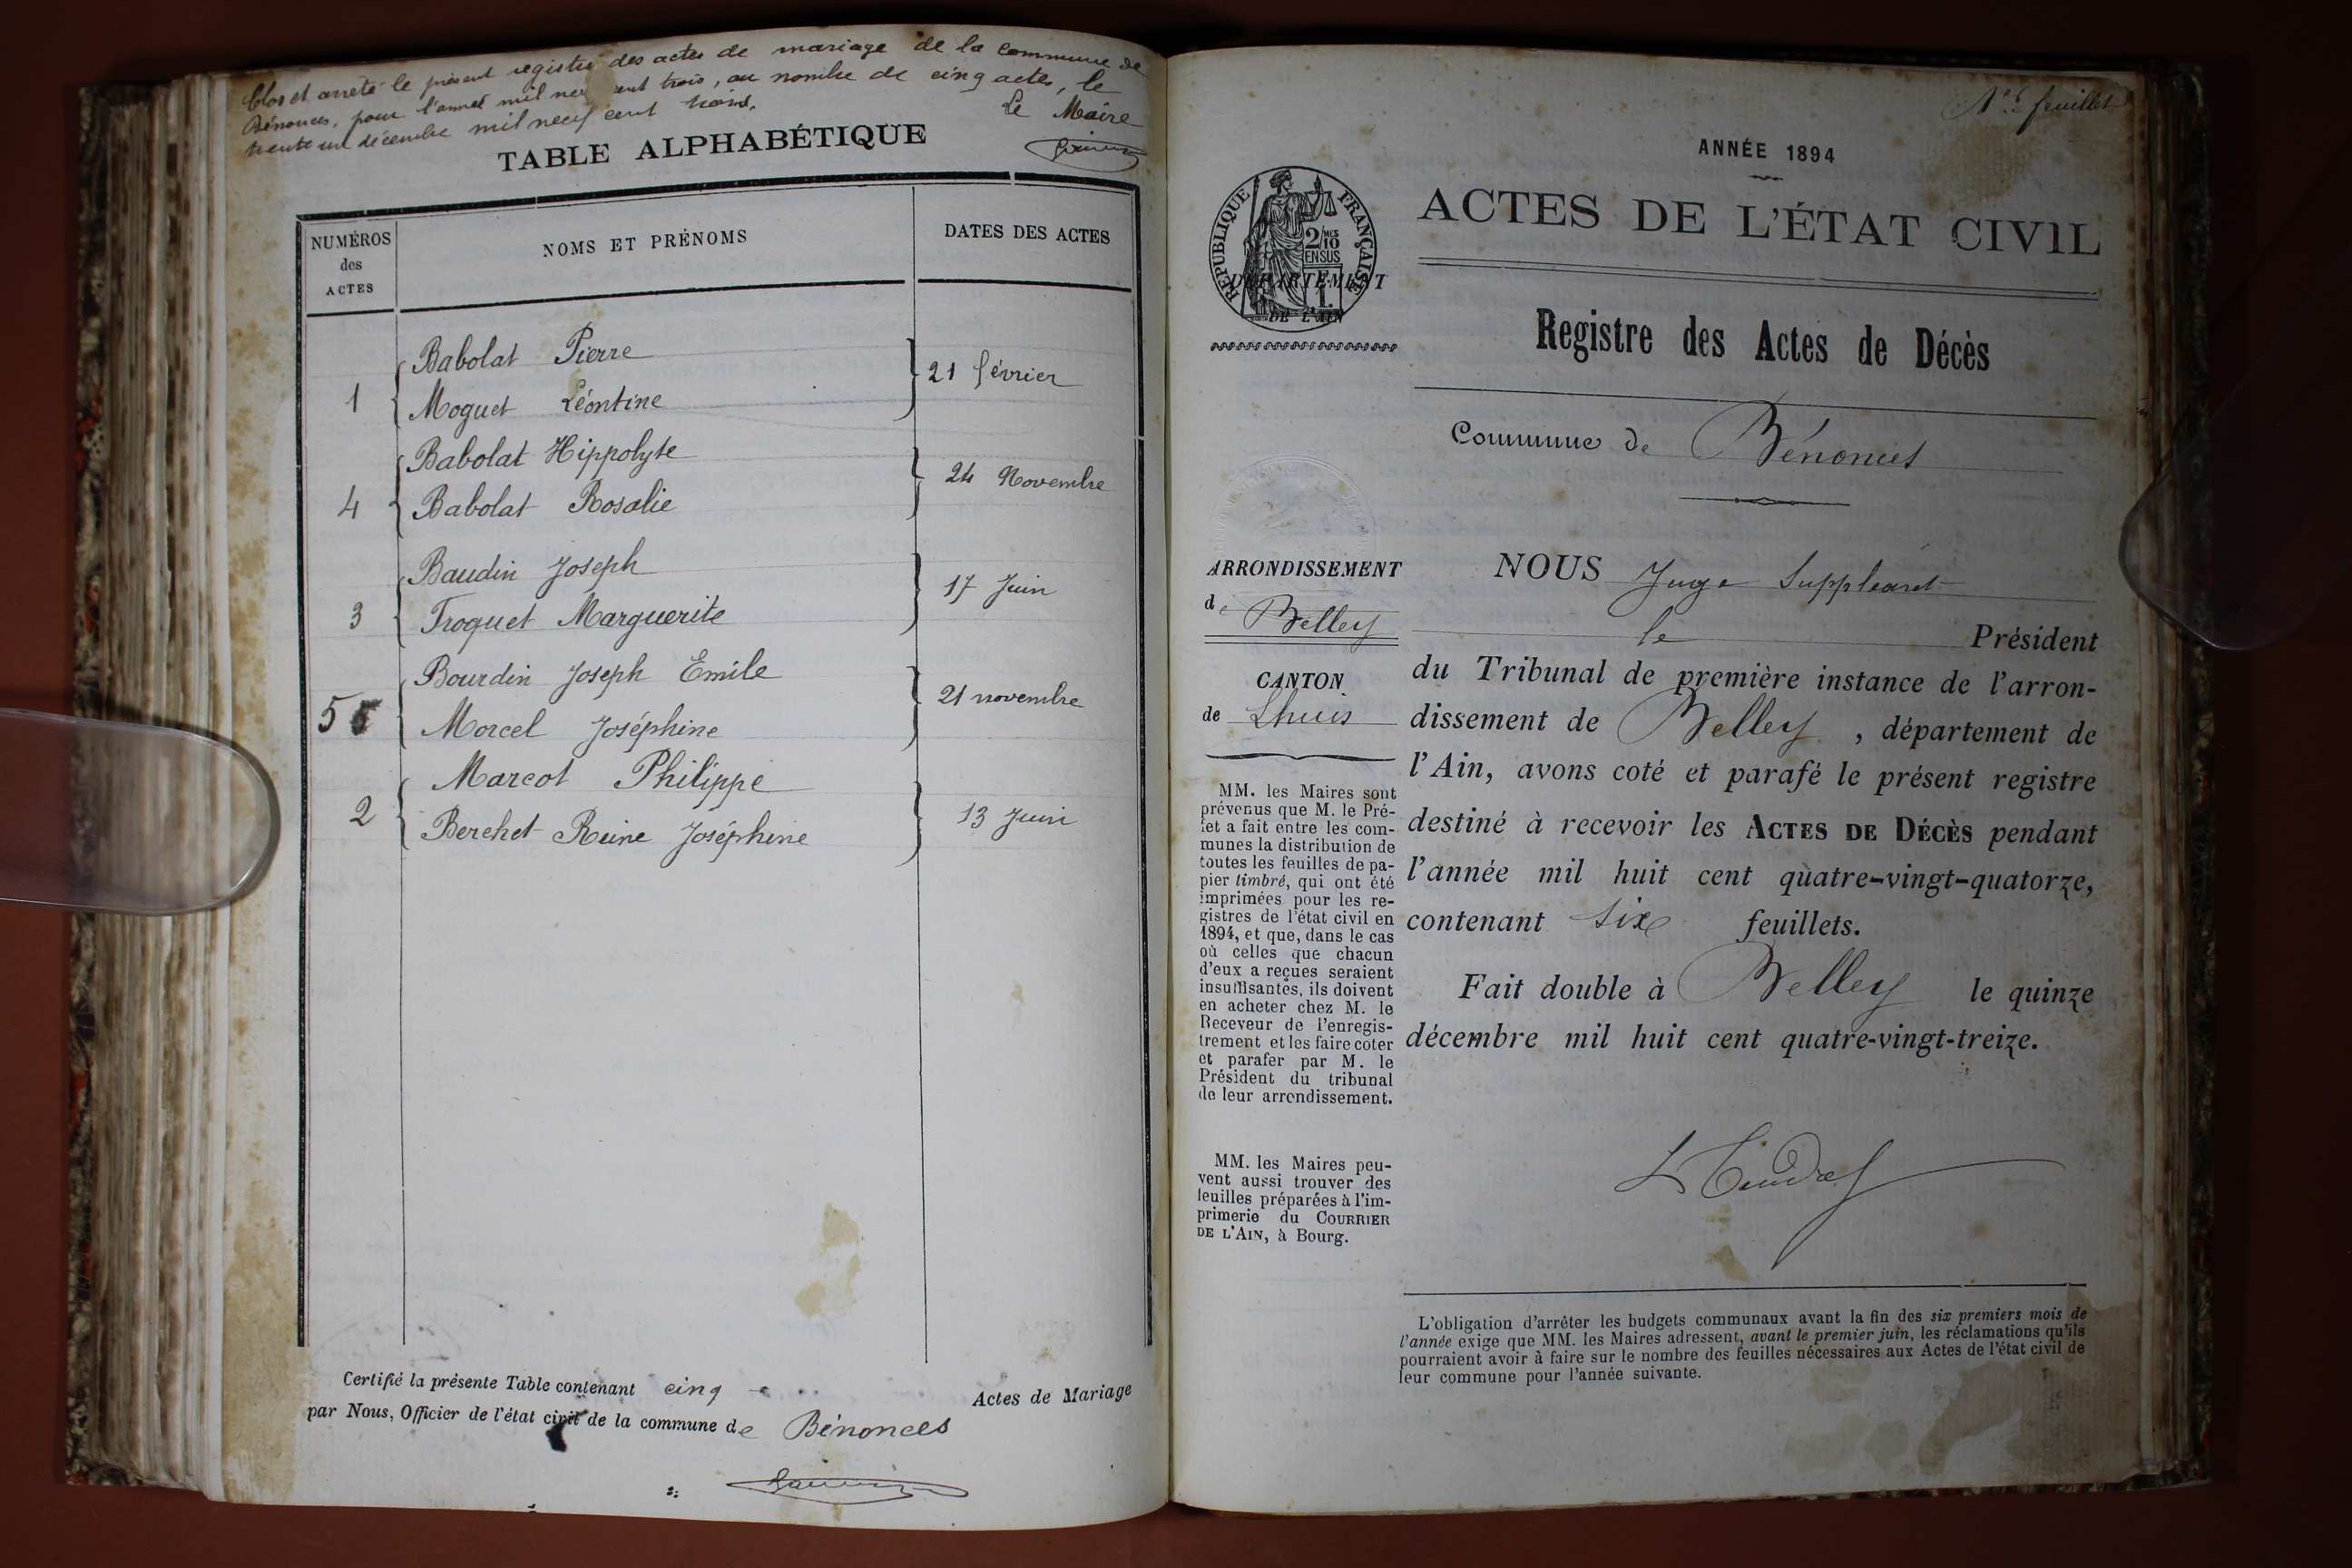 Clos et arrêté le présent registre des actes de mariage de la commune de
Bénonces, pour l'année mil neuf cent trois, au nombre de cinq actes, le
trente un décembre mil neuf cent trois.
Le Maire
TABLE ALPHABÉTIQUE
NUMÉROS
des
ACTES
NOMS ET PRÉNOMS
DATES DES ACTES
Babolat Pierre
1
Moguet Léontine
21 février
Babolat Hippolyte
4
Babolat Rosalie
24 Novembre
Baudin Joseph
3
Troquet Marguerite
17 Juin
Bourdin Joseph Emile
5
Morcel Joséphine
21 novembre
Marcot Philippe
2
Berchet Reine Joséphine
13 Juin
Certifié la présente Table contenant cinq Actes de Mariage
par Nous, Officier de l'état civil de la commune de Bénonces
1er feuillet
ANNÉE 1894
RÉPUBLIQUE FRANÇAISE
2 MES 10
EN SUS
DÉPARTEMENT
DE L'AIN
ACTES DE L'ÉTAT CIVIL
Registre des Actes de Décès
Commune de Bénonces
ARRONDISSEMENT
de Belley
CANTON
de Lhuis
MM. les Maires sont
prévenus que M. le Pré-
fet a fait entre les com-
munes la distribution de
toutes les feuilles de pa-
pier timbré, qui ont été
imprimées pour les re-
gistres de l'état civil en
1894, et que, dans le cas
où celles que chacun
d'eux a reçues seraient
insuffisantes, ils doivent
en acheter chez M. le
Receveur de l'enregis-
trement et les faire coter
et parafer par M. le
Président du tribunal
de leur arrondissement.
MM. les Maires peu-
vent aussi trouver des
feuilles préparées à l'im-
primerie du COURRIER
DE L'AIN, à Bourg.
NOUS Juge Suppléant
le Président
du Tribunal de première instance de l'arron-
dissement de Belley, département de
l'Ain, avons coté et parafé le présent registre
destiné à recevoir les ACTES DE DÉCÈS pendant
l'année mil huit cent quatre-vingt-quatorze,
contenant six feuillets.
Fait double à Belley le quinze
décembre mil huit cent quatre-vingt-treize.
L'obligation d'arrêter les budgets communaux avant la fin des six premiers mois de
l'année exige que MM. les Maires adressent, avant le premier juin, les réclamations qu'ils
pourraient avoir à faire sur le nombre des feuilles nécessaires aux Actes de l'état civil de
leur commune pour l'année suivante.